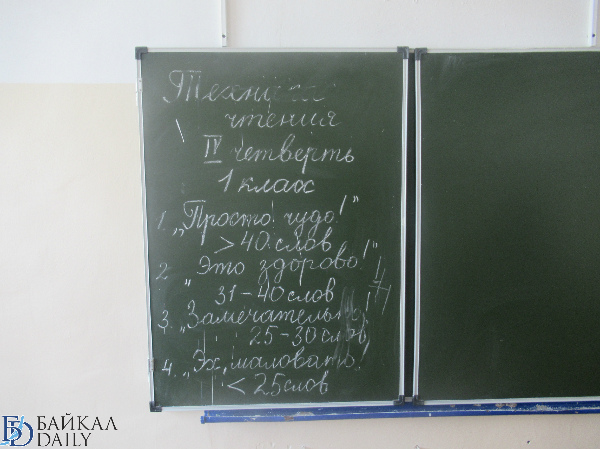 Техника
чтения
IV четверть
1 класс
1. „Просто чудо!"
> 40 слов
2. „Это здорово!"
31-40 слов
3. „Замечательно!
25-30 слов
4. „Эх, маловато!
< 25 слов
БАЙКАЛ
DAILY